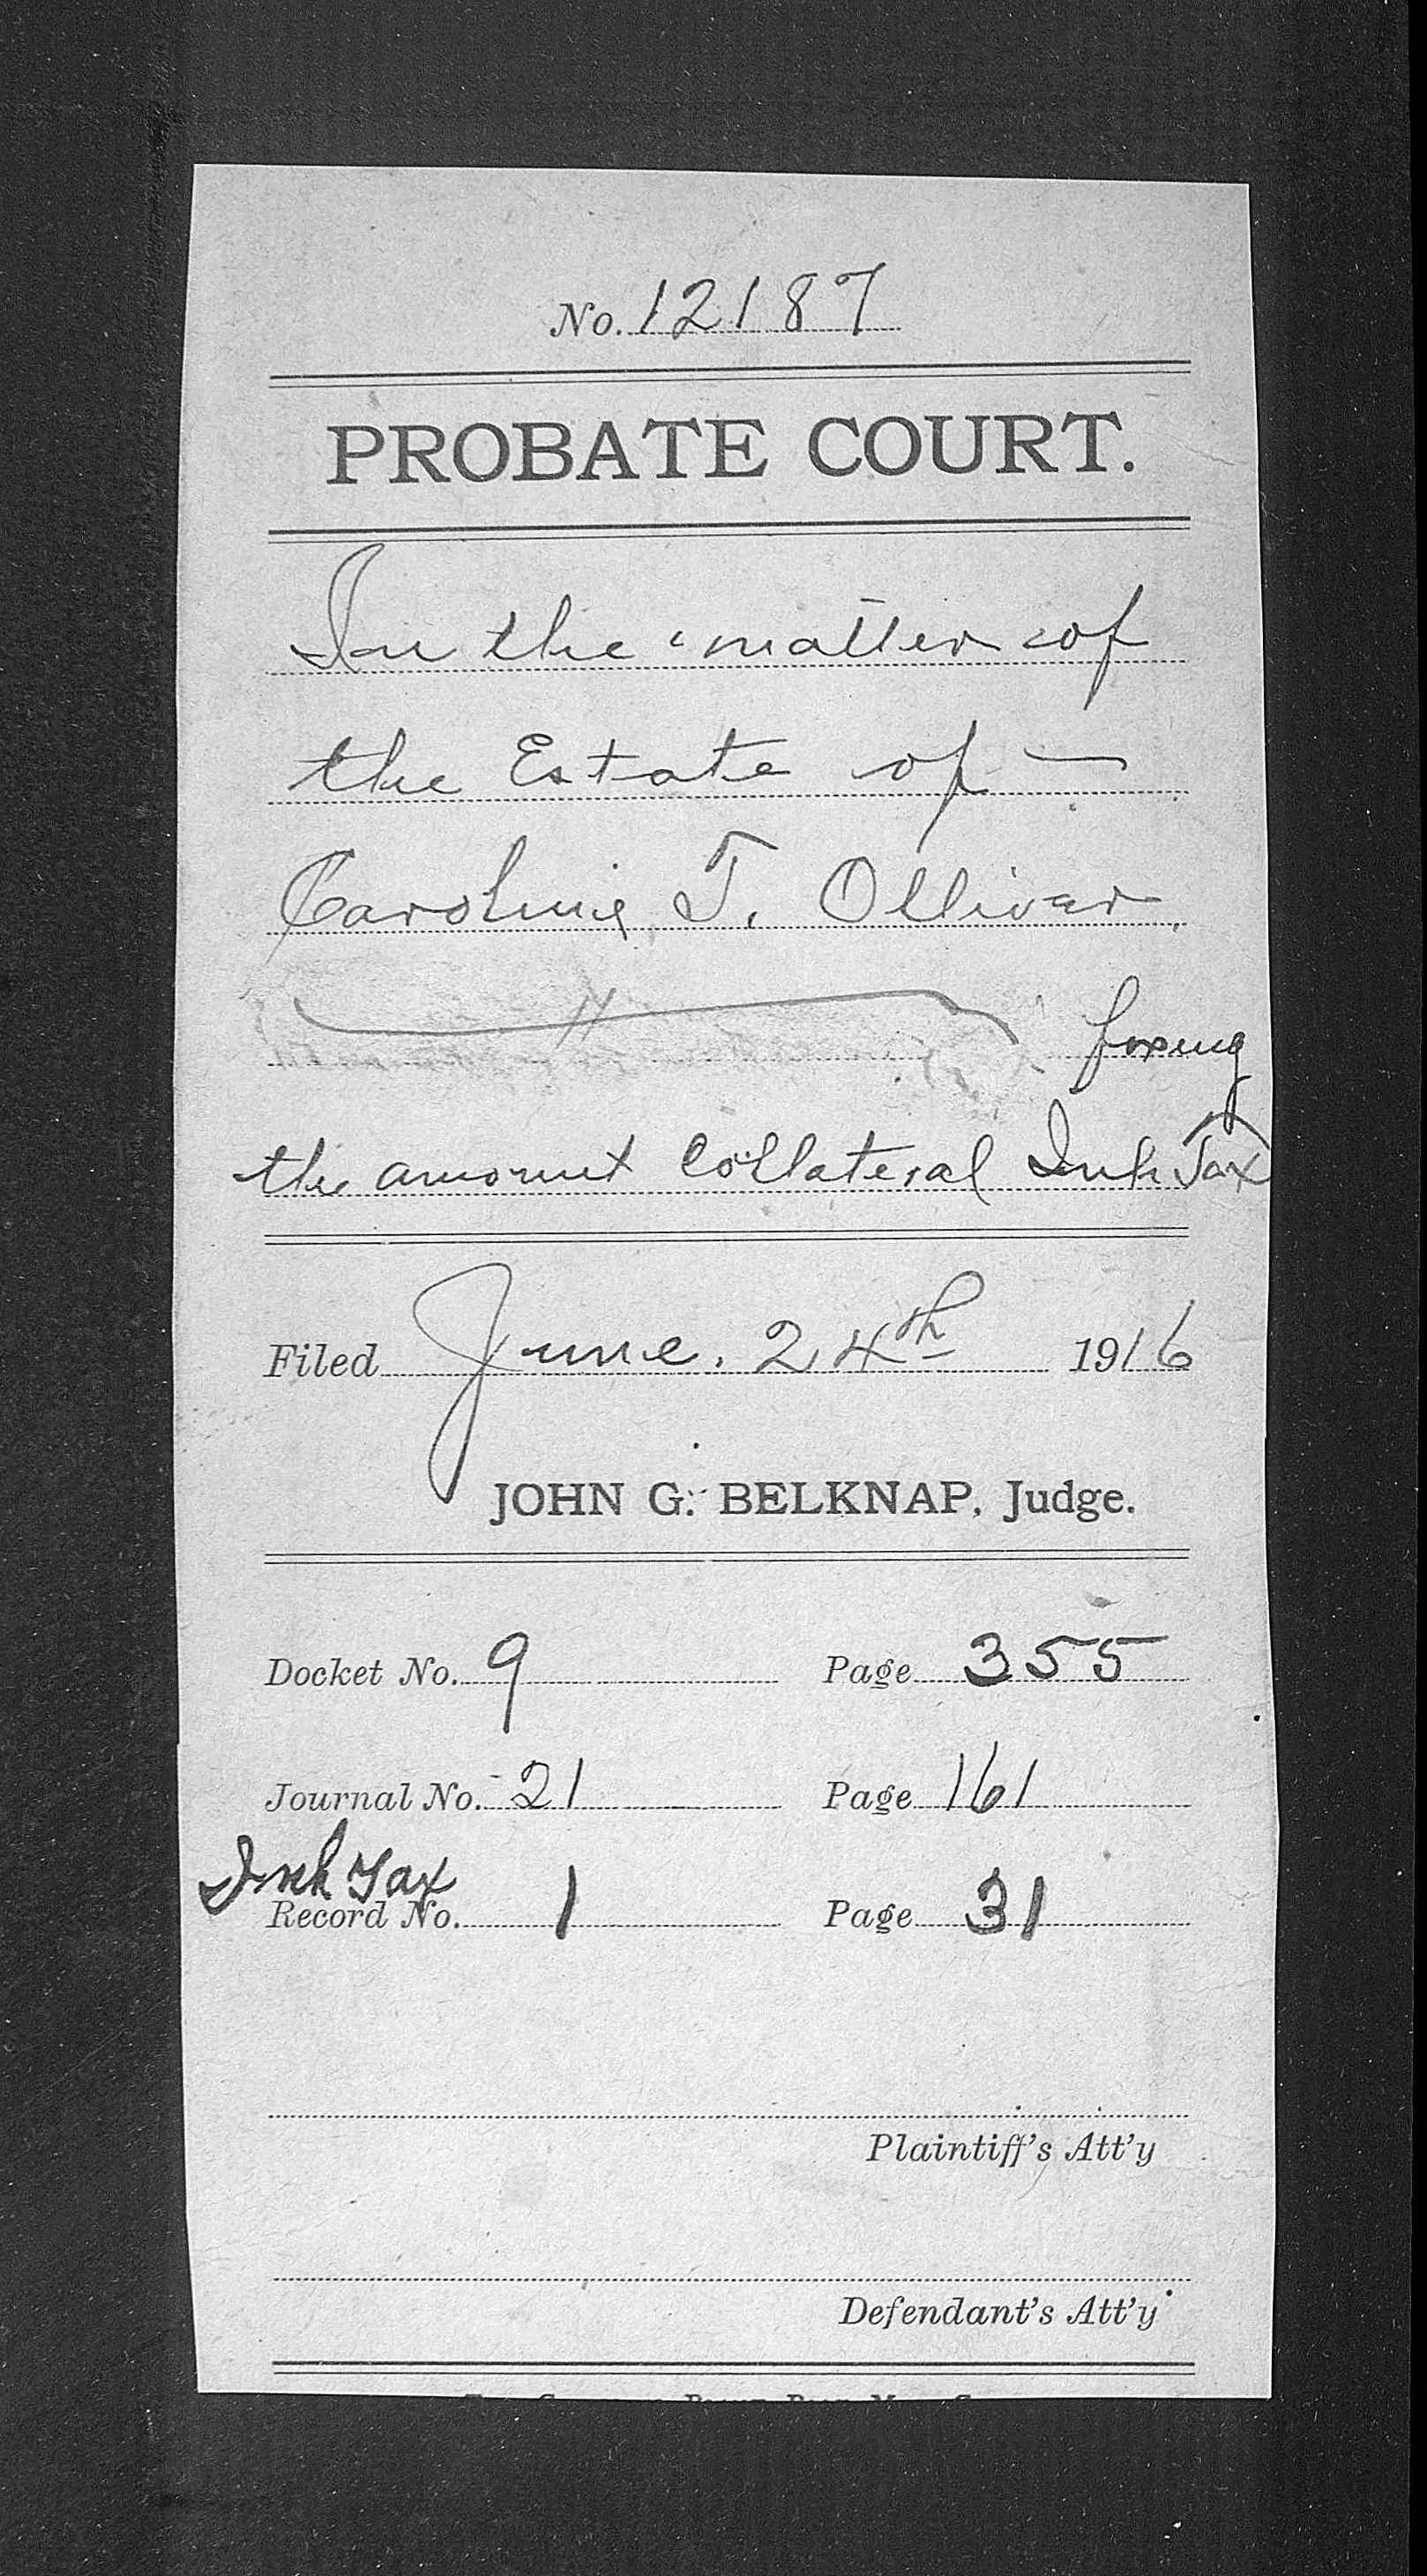 No. 12187
PROBATE COURT.
In the matter of
the Estate of —
Caroline T. Olliver
fixing
the amount Collateral Inh Tax
Filed June. 24th 1916
JOHN G. BELKNAP, Judge.
Docket No. 9 Page 355
Journal No. 21 Page 161
Inh Tax
Record No. 1 Page 31
Plaintiff's Att'y
Defendant's Att'y